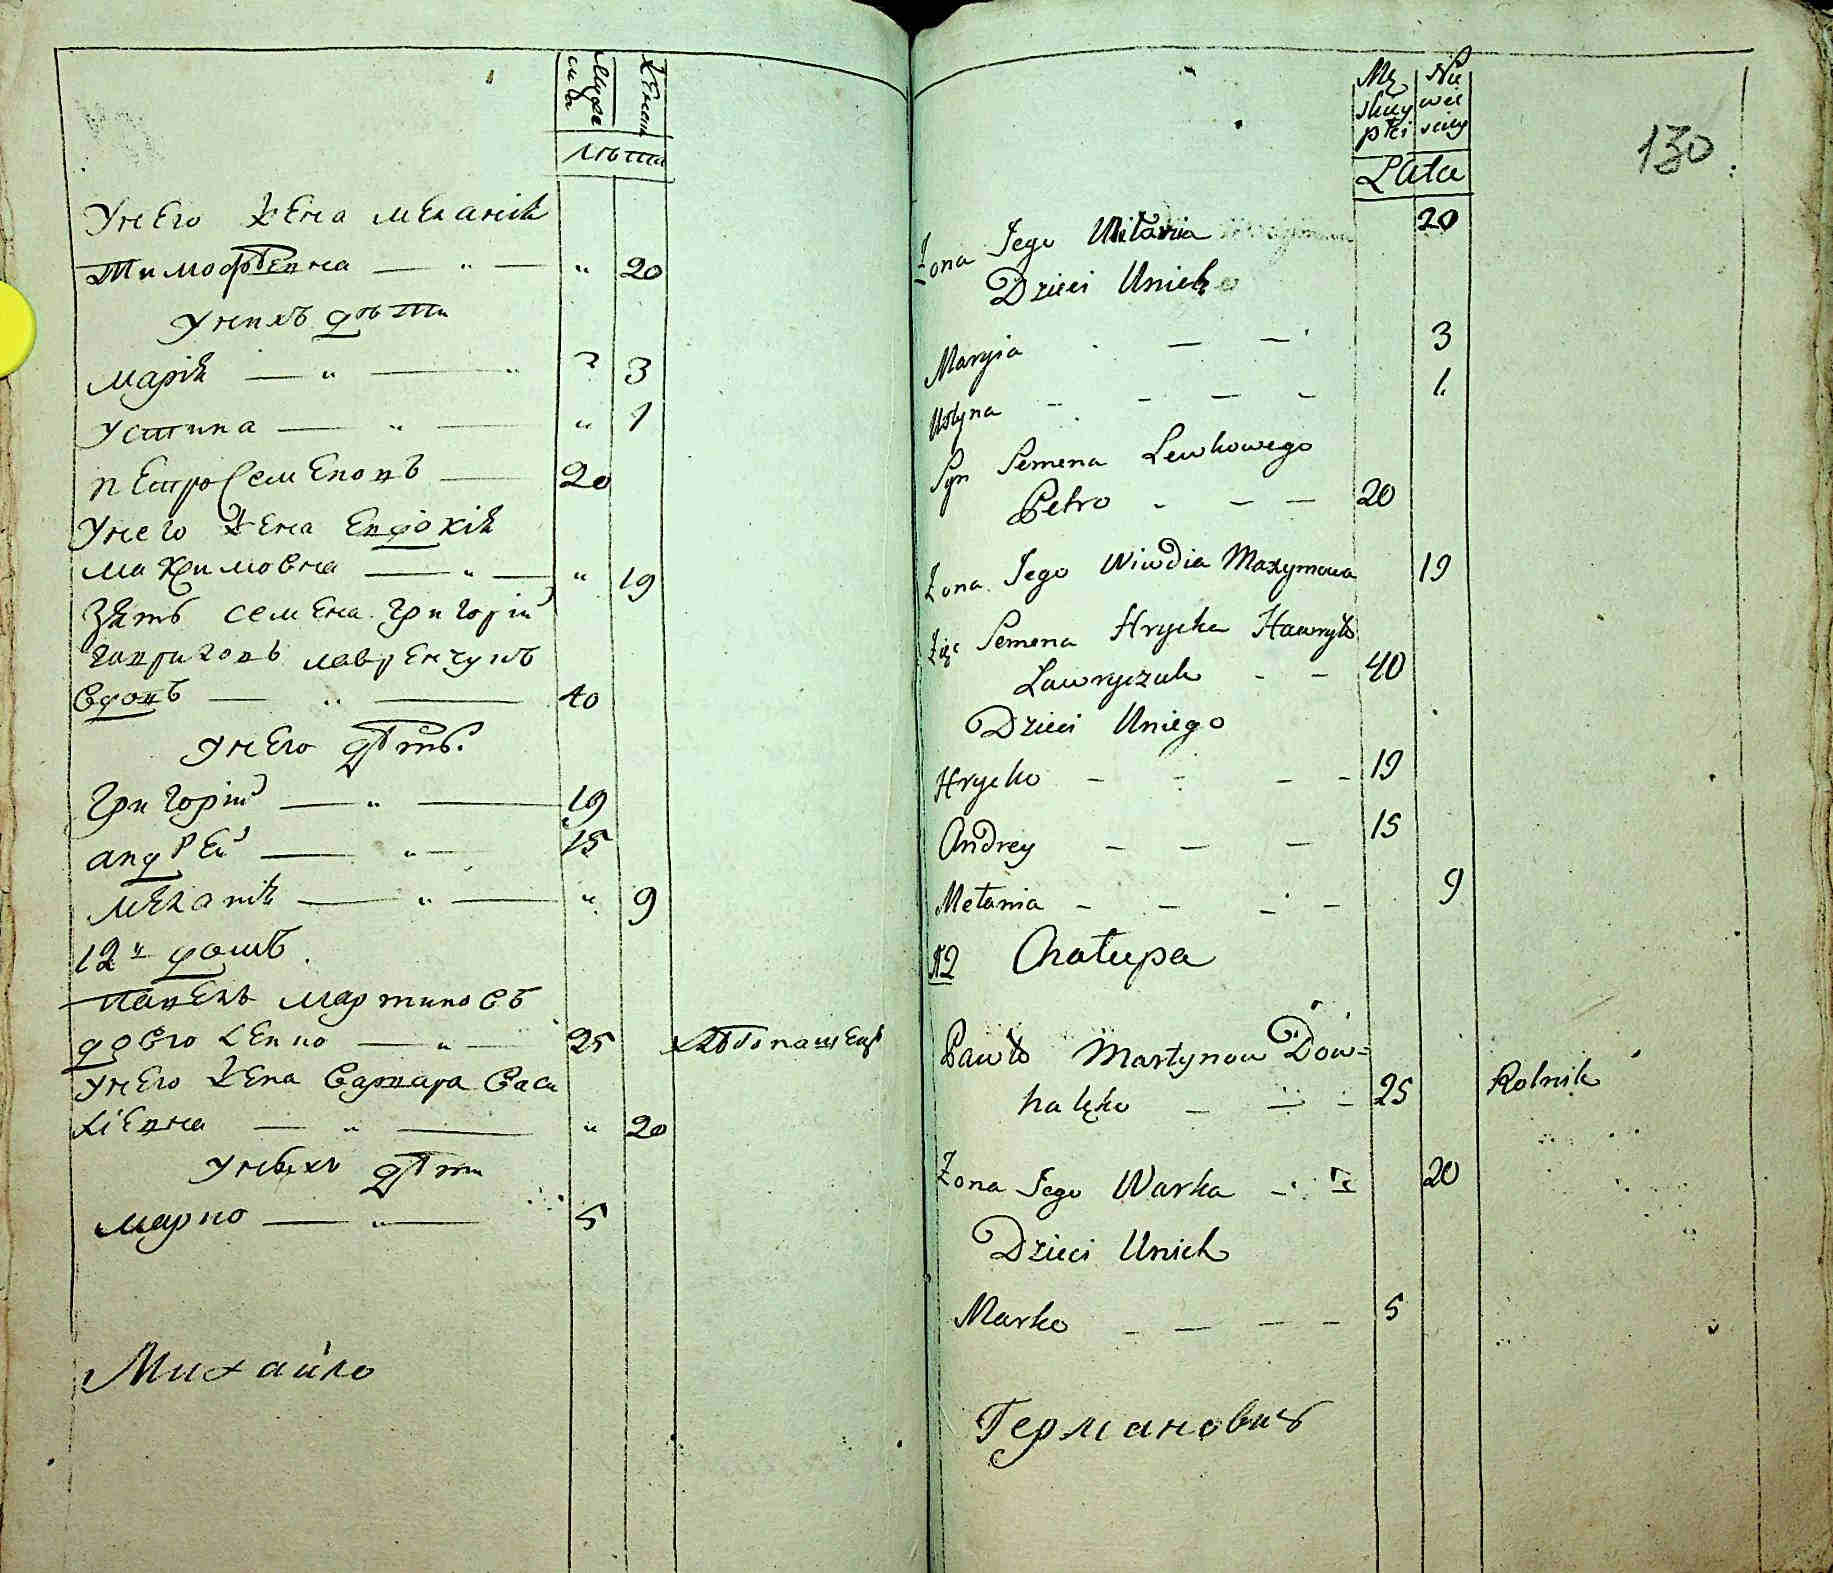 Мужеска
Женска
лѣта
У него жена Меланія
Тимофѣевна — " — " 20
У нихъ дѣти
Марія — " — " 3
Устина — " — " 1
Петро Семеновъ — 20
У него жена Евдокія
Максимовна — " — " 19
Зять Семена Григорій
Гавриловъ Лавренчукъ
вдовъ — " — 40
У него дѣтѣ
Григорій — " — 19
Андрей — " — 15
Меланія — " — " 9
12й домъ
Павелъ Мартиновъ
25 хлѣбопашецъ
У него жена Варвара Васи
ліевна — " — " 20
У нихъ дѣти
Марко — " — 5
Михайло
Męskiey płci
Niewieściey
Lata
130
Żona Jego Mełania 20
Dzieci Unich
Maryia - — — 3
Ustyna - - - - 1
Syn Semena Lewkowego
Petro - - — 20
Żona Jego Wiwdia Maxymowa 19
Zięć Semena Hrycko Hawryło
Lawryczuk - - 40
Dzieci Uniego
Hrycko - - - - 19
Andrey - - - 15
Mełania - - - - 9
12 Chałupa
Pawło Martynow Dow=
hałęko - - - 25 Rolnik
Żona Jego Warka - - 20
Dzieci Unich
Marko - - - - 5
Германовичъ